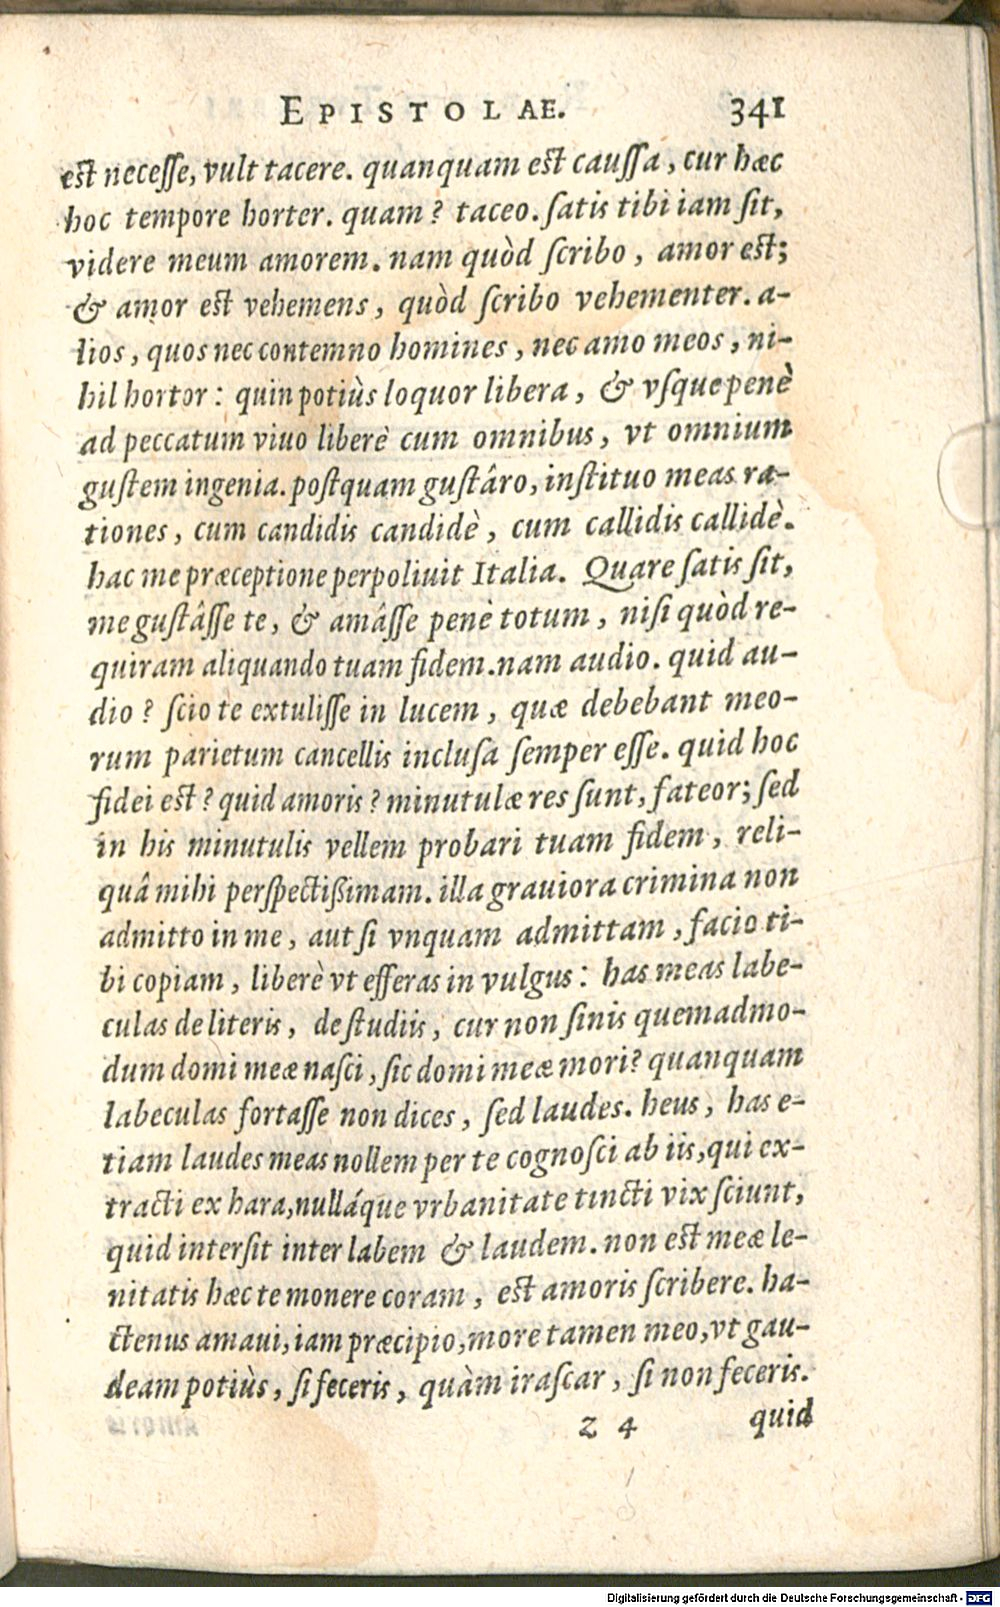 EPISTOLAE. 341
est necesse, vult tacere. quanquam est caussa, cur hæc
hoc tempore horter. quam? taceo. satis tibi iam sit,
videre meum amorem. nam quòd scribo, amor est;
& amor est vehemens, quòd scribo vehementer. a-
lios, quos nec contemno homines, nec amo meos, ni-
hil hortor: quin potiùs loquor libera, & vsque penè
ad peccatum viuo liberè cum omnibus, vt omnium
gustem ingenia. postquam gustâro, instituo meas ra-
tiones, cum candidis candidè, cum callidis callidè.
hac me præceptione perpoliuit Italia. Quare satis sit,
me gustâsse te, & amâsse penè totum, nisi quòd re-
quiram aliquando tuam fidem. nam audio. quid au-
dio? scio te extulisse in lucem, quæ debebant meo-
rum parietum cancellis inclusa semper esse. quid hoc
fidei est? quid amoris? minutulæ res sunt, fateor; sed
in his minutulis vellem probari tuam fidem, reli-
quâ mihi perspectißimam. illa grauiora crimina non
admitto in me, aut si vnquam admittam, facio ti-
bi copiam, liberè vt efferas in vulgus: has meas labe-
culas de literis, de studiis, cur non sinis quemadmo-
dum domi meæ nasci, sic domi meæ mori? quanquam
labeculas fortasse non dices, sed laudes. heus, has e-
tiam laudes meas nollem per te cognosci ab iis, qui ex-
tracti ex hara, nulláque vrbanitate tincti vix sciunt,
quid intersit inter labem & laudem. non est meæ le-
nitatis hæc te monere coram, est amoris scribere. ha-
ctenus amaui, iam præcipio, more tamen meo, vt gau-
deam potiùs, si feceris, quàm irascar, si non feceris.
Z 4 quid
Digitalisierung gefördert durch die Deutsche Forschungsgemeinschaft - DFG